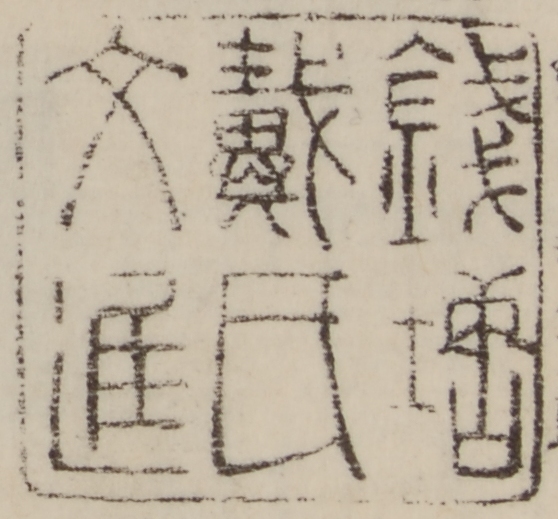 錢塘
戴氏
文進